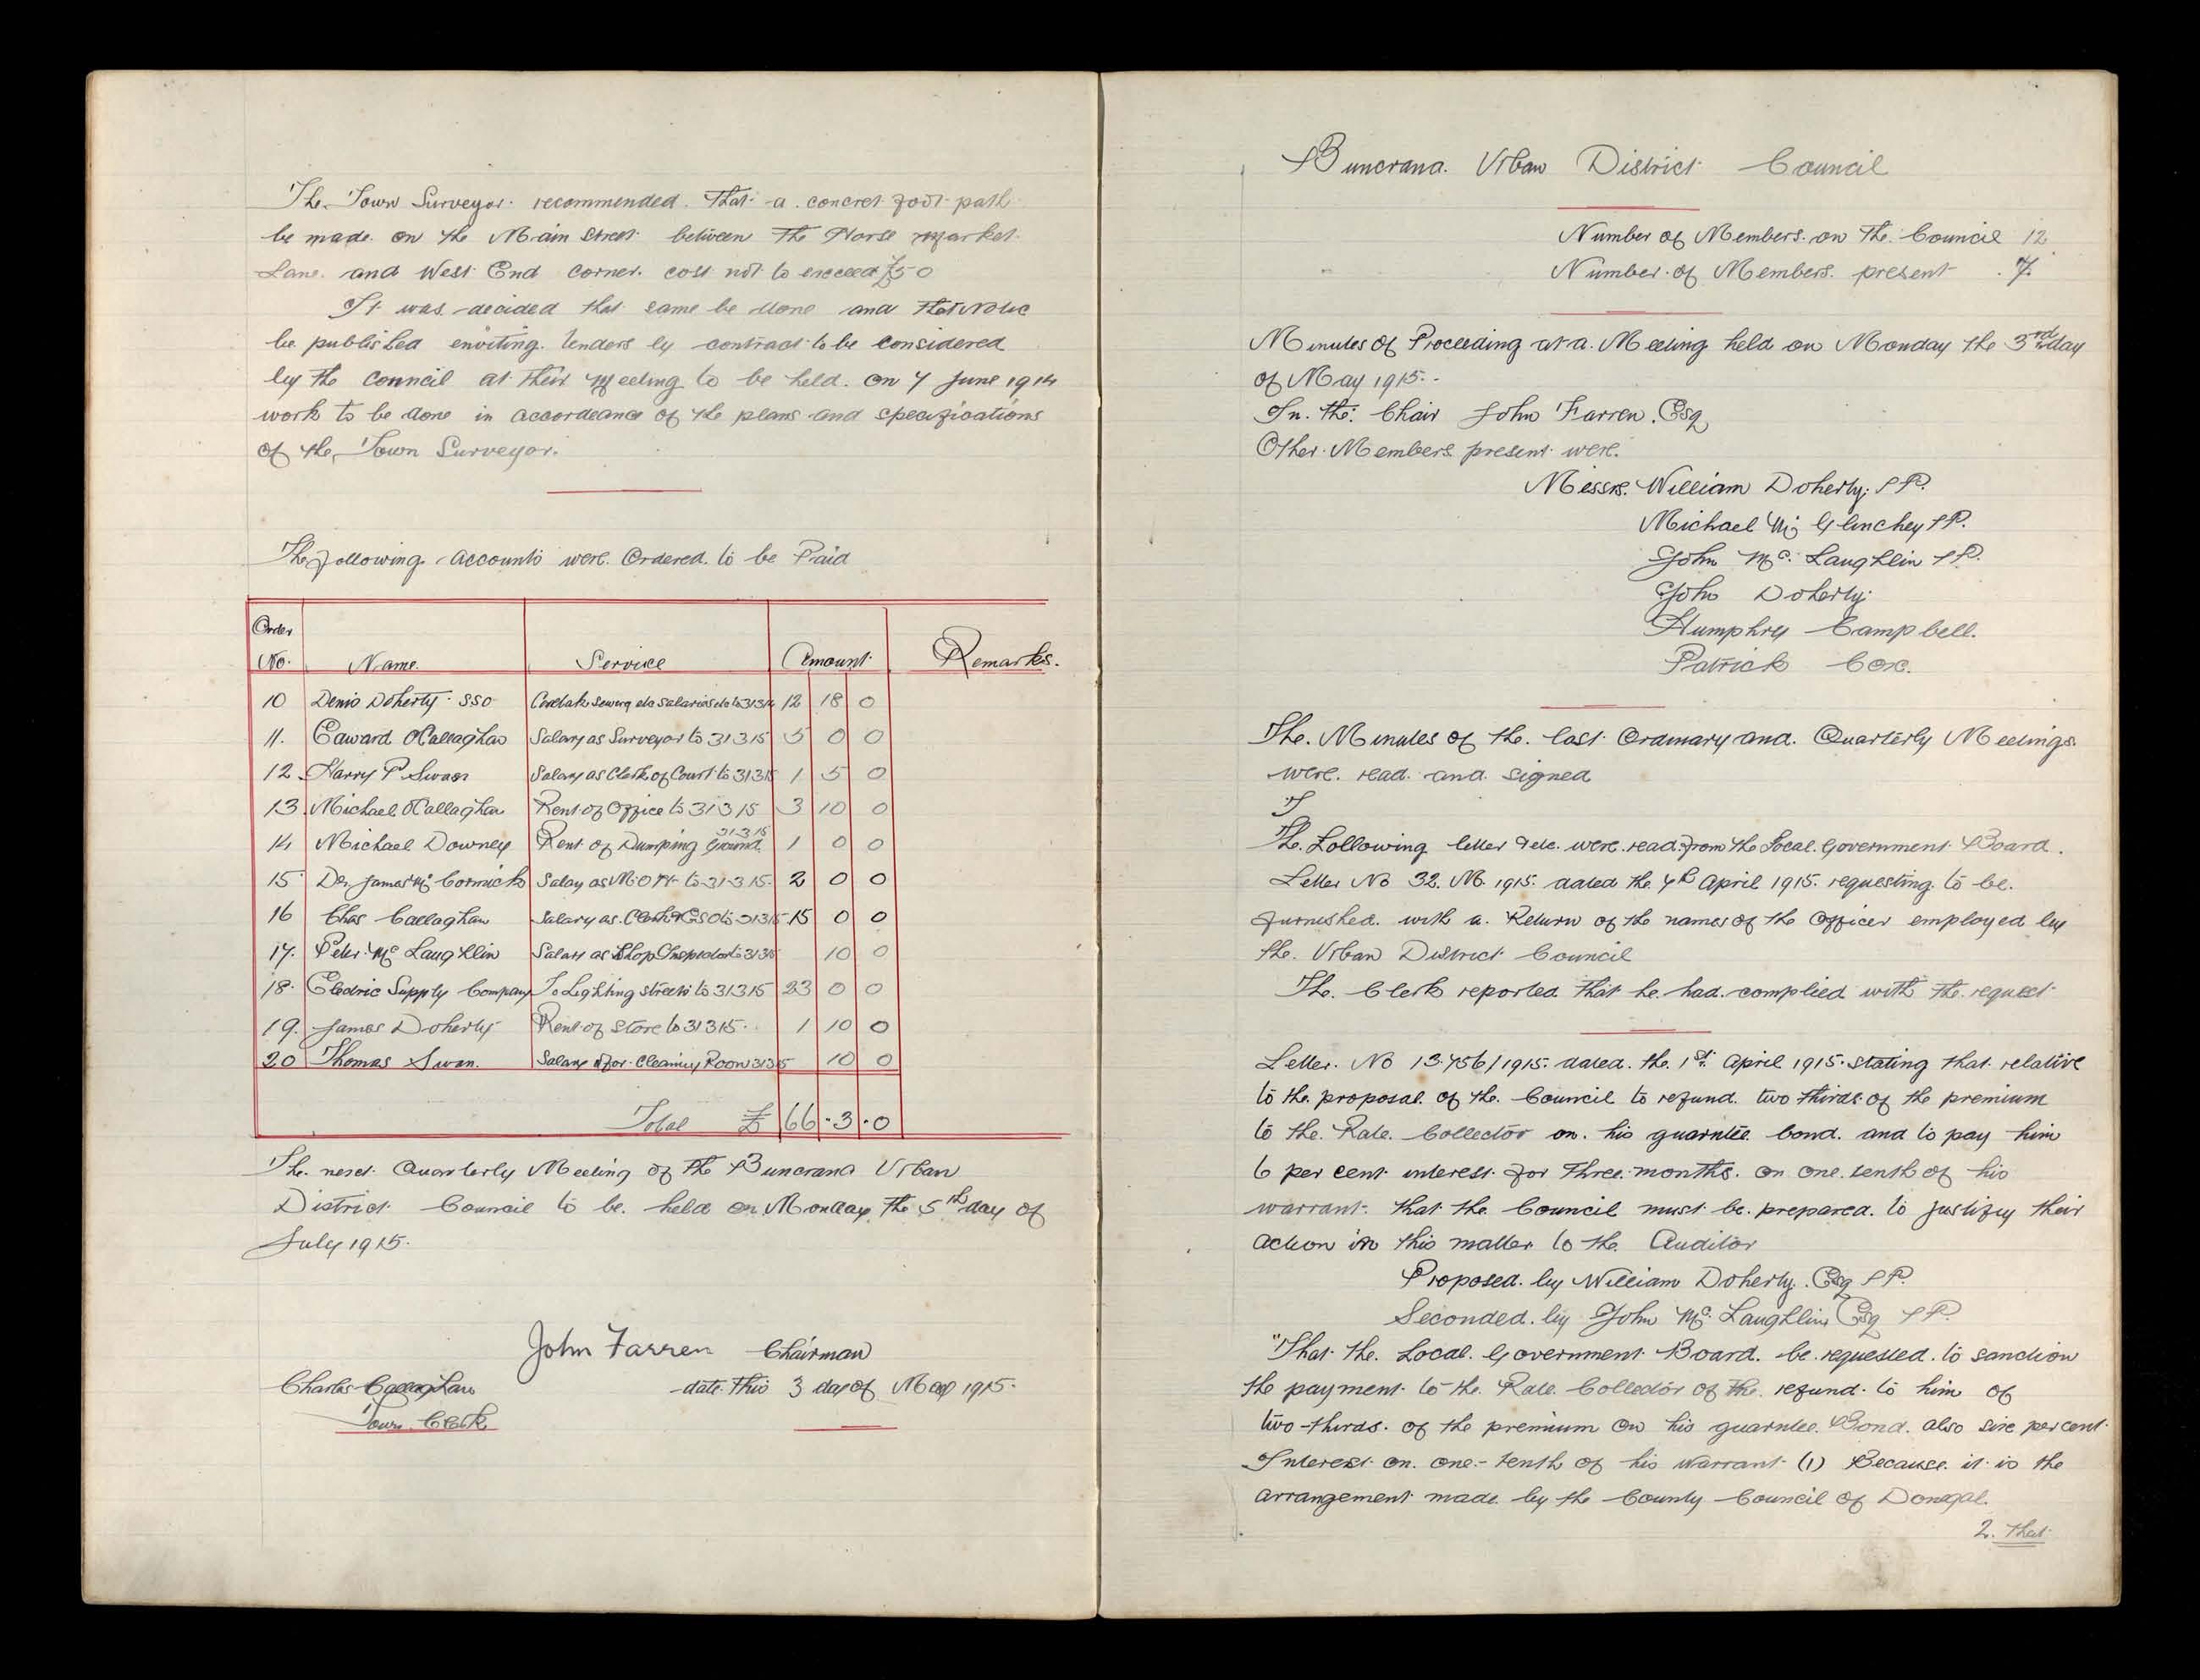 The Town Surveyor recommended that a concret foot path
be made on the Main Street between the Horse Market
Lane and West End corner. cost not to exceed £50
It was decided that same be done and that Notice
be published enviting tenders by contract to be considered
by the Council at their Meeting to be held on 7 June 1914
work to be done in accordeance of the plans and specifications
of the Town Surveyor.
The following Accounts were Ordered to be Paid
Order No. Name. Service Amount Remarks.
10 Denis Doherty SSO salaries etc to 31314 12 18 0
11. Edward OCallaghan Salary as Surveyor to 31 3 15 5 0 0
12 Harry P Swan Salary as Clerk of Court to 31315 1 5 0
13 Michael OCallaghan Rent of Office to 31 3 15 3 10 0
14 Michael Downey Rent of Dumping Ground 31-3 15 1 0 0
15 Dr. James Mc Cormick Salay as M.O.H. to 31-3 15. 2 0 0
16 Chas Callaghan Salary as Clerk & ESO to 31315 15 0 0
17. Peter Mc Laughlin Salary as Shop Inspector to 31315 10 0
18. Electric Supply Company To Lighting streets to 31315 23 0 0
19. James Doherty Rent of Store to 31315. 1 10 0
20 Thomas Swan. Salary for Cleaning Room 31315 10 0
Total £ 66 . 3 . 0
The next Quarterly Meeting of the Buncrana Urban
District Council to be held on Monday the 5th day of
July 1915.
John Farren Chairman
Charles Callaghan date this 3 day of May 1915.
Town Clerk
Buncrana Urban District Council
Number of Members on the Council 12
Number of Members present 7.
Minutes of Proceeding at a Meeting held on Monday the 3rd day
of May 1915.
In the Chair John Farren Esq
Other Members present were.
Messrs. William Doherty JP.
Michael Mc Glinchey JP.
John Mc Laughlin JP.
John Doherty
Humphrey Campbell.
Patrick Cox.
The Minutes of the last Ordinary and Quarterly Meetings
were read and signed
T
The Following letter & etc. were read from the Local Government Board.
Letter No 32. M. 1915. dated the 7th April 1915. requesting to be
furnished with a Return of the names of the Officer employed by
the Urban District Council
The Clerk reported that he had complied with the request
Letter No 13.756/1915. dated the 1st April 1915. stating that relative
to the proposal of the Council to refund two thirds of the premium
to the Rate Collector on his guarntee bond and to pay him
6 per cent interest for three months on one tenth of his
warrant that the Council must be prepared to justify their
action in this matter to the Auditor
Proposed by William Doherty Esq JP.
Seconded by John Mc Laughlin Esq JP.
"That the Local Government Board be requested to sanction
the payment to the Rate Collector of the refund to him of
two-thirds of the premium on his guarntee Bond also six per cent
Interest on one-tenth of his warrant (1) Because it is the
arrangement made by the County Council of Donegal.
2. that